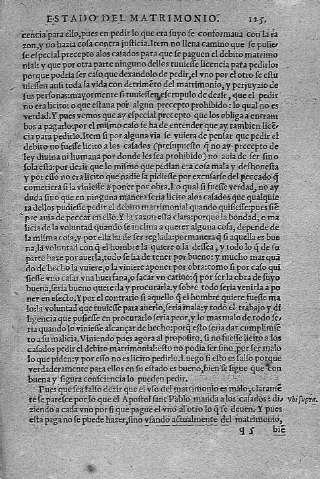 ESTADO DEL MATRIMONIO. 125.
cencia para ello, pues en pedir lo que era suyo se conformaua con la ra
zon, y no hazia cosa contra justicia. Item no lleua camino que se pusies
se especial precepto a los casados para que se paguen el debito matrimo
nial: y que por otra parte ninguno dellos tuuiesse licencia para pedirlo:
porque podria ser caso que dexandolo de pedir, el vno por el otro se estu
uiessen assi toda la vida con detrimẽto del matrimonio, y perjuyzio de
sus personas: mayormente si tuuiessen escrupulo de dessde, que el pedir
no era licito o que estaua por algun precepto prohibido: lo qual no es
verdad. Y pues vemos que ay especial precepto que los obliga a entram
bos a pagarlo: por el mismo caso se ha de entender que ay tambien licẽ
cia para pedirlo. Item si por alguna via se vuiera de pensar que pedir el
debito no fuesse licito a los casados (presupuesto q̃ no ay precepto de
ley diuina ni humana por donde les sea prohibido) no auia de ser sino
sola esta: por dezir que lo mismo que pedian era cosa mala y deshonesta
y por esso no era licito que nadie la pidiesse por excusarse del peccado q̃
cometiera si la viniesse a poner por obra. Lo qual si fuesse verdad, no ay
duda sino que en ninguna manera seria licito a los casados que qualquie
ra dellos pudiesse pedir el debito matrimonial quando quisiesse: pues siẽ
pre auia de peccar en ello. Y la razon esta clara: porque la bondad, o ma
licia de la voluntad quando se inclina a querer alguna cosa, depende de
la misma cosa, y por ella ha de ser reglada: por manera q̃ si aquella es bue
na, la voluntad con q̃ el hombre la quiere o la dessea, y todo lo q̃ de su
parte haze por auerla, todo se ha de tener por bueno: y mucho mas quã
do de hecho la quiere, o la viniere a poner por obra: como si por caso qui
siesse vno casar vna huerfana, o sacar vn catiuo: q̃ por ser la obra de suyo
buena, seria bueno quererla y procurarla, y sobre todo seria venirla a po
ner en efecto. Y por el contrario si aquello q̃ el hombre quiere fuesse ma
lo: la voluntad que tuuiesse para auerlo, seria mala: y todo el trabajo y di
ligencia que pusiesse en procurarlo seria peor, y lo mas malo de todo se
ria quando lo viniesse alcançar de hecho: porq̃ esto seria dar cumplimiẽ
to a su malicia. Viniendo pues agora al proposito, si no fuesse licito a los
casados pedir el debito matrimonial: esto no podia ser sino por ser malo
lo que piden: y por esso no es licito pedirlo. Luego si esto es falso porque
verdaderamente para ellos en su estado es bueno, bien se sigue que con
buena y segura consciencia lo pueden pedir.
Pues que sea falso dezir que el vso del matrimonio es malo, clarame
te se paresce por lo que el Apostol sant Pablo manda a los casados di vbi supra.
ziendo a cada vno por si que pague el vno al otro lo q̃ se deuen. Y pues
esta paga no se puede hazer, sino vsando actualmente del matrimonio,
q 5 biẽ